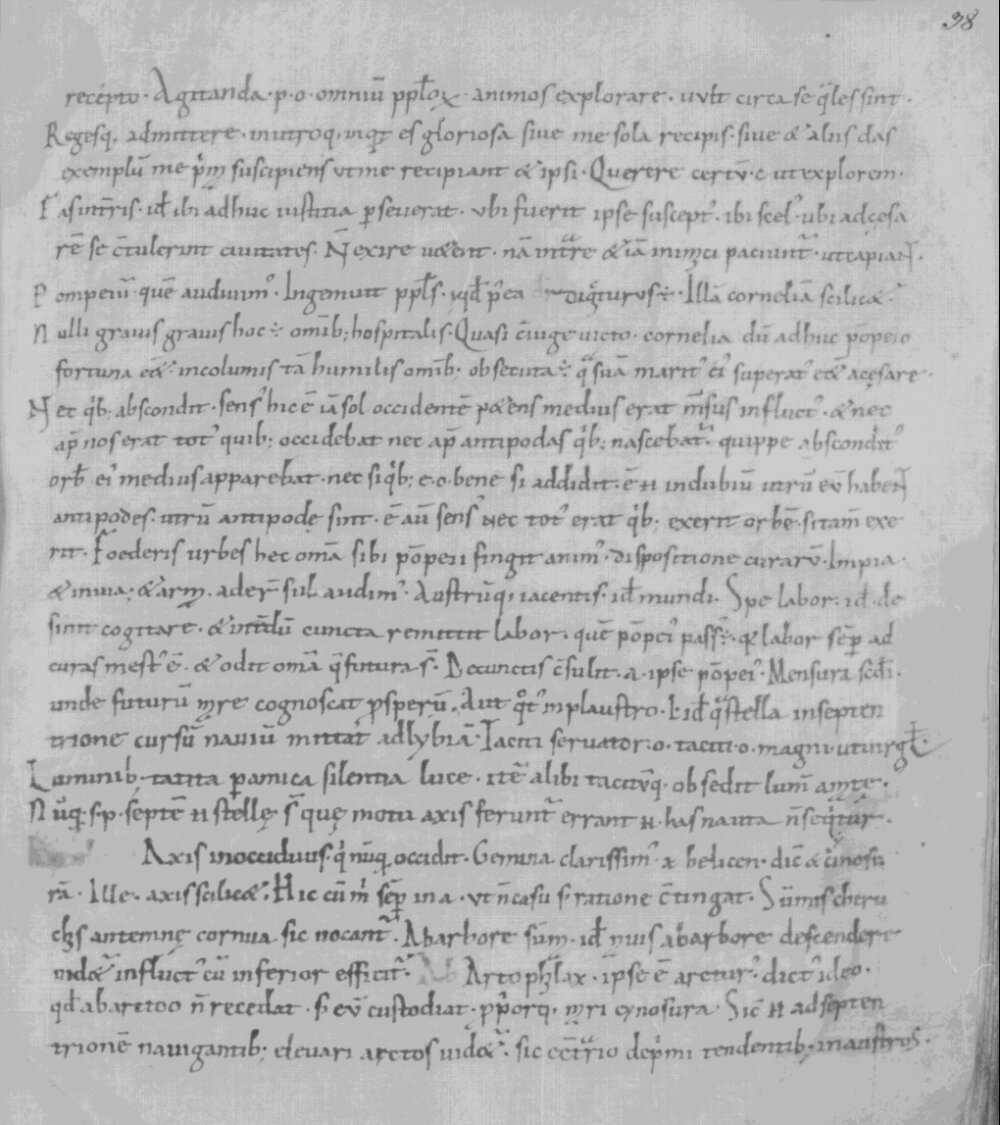 38
recepto. Agitanda .p.o. omniũ ppłoꝝ animos explorare. uult circa se q̃les sint.
Regesq; admittere. inutroq; inqt es gloriosa siue me sola recipis. siue & aliis das
exemplũ me p̃m suscipiens ut me recipiant & ipsi. Querere certũ .ẽ. ut explorem.
Fas intr̃is. id ibi adhuc iustitia pseuerat. ubi fuerit ipse suscept' ibi scel' ubi ad cesa
rẽ se c̃tulerint ciuitates. N̄ exire uident. nã int̃re & iã inimici paciunt̃. ut capiaN̄.
Pompeiũ quẽ audiuim'. Ingemuit ppłs. qd p̃ea dig̃turos. Illã corneliã scilic&.
Nulli grauis grauis hoc. omib; hospitalis. Quasi c̃iuge uicto. cornelia dũ adhuc põpeio
fortuna e&. incolumis tã humilis omib; obsecuta. q̃ suã marit' ci' superat' e& a cesare.
Nec q̃b; abscondit. sens' hic ẽ iã sol occidentẽ p&ens medius erat m̃sus in fluct'. & nec
ap̃ nos erat tot' quib; occidebat nec ap̃ antipodas q̃b; nascebat̃. quippe abscondit'
orb̃ ei' medius apparebat. nec si q̃b; .e.o. bene si addidit. ẽ ñ indubiũ utrũ eũ habeN̄
antipodes. utrũ antipodę sint. ẽ aũ sens' nec tot' erat q̃b; exerit orbẽ. si tam exe
rit. Foederis urbes hec omã sibi põpeii fingit anim'. dispositione curarũ. Impia.
& inuia; & arm. ader sul audim'. Austrũq; iacentis. id mundi. Spe labor. id de
sinit cogitare. & intdũ cuncta remittit labor. quẽ põpei' pass'. qr labor sẽp ad
curas mest' ẽ. & odit omã q̃ futura s̃. De cunctis c̃sulit. a. ipse põpei'. Mensura scdi.
unde futurũ mre cognoscat psperũ. Aut q̃t' in plaustro. l id q̃ stella in septen
trione cursũ nauiũ mittat ad lybiã. Taciti seruator .o. taciti .o. magni. ut uirgł.
Luminib; tacita p amica silentia luce. itẽ alibi tacitũq; obsedit lumĩ amte.
Nũq; .s.p. septẽ ñ stellę s̃ quę motu axis ferunt̃ errant ñ. has nauta ñ seq̃tur.
Axis inocciduus. q̃ nũq; occidit. Gemina clarissim' a belicen. dic̃ & cinosu
rã. Ille. axis scilic&. Hic cũ m̃ sẽp in a. ut ñ casu s̃ ratione c̃tingat. Sũmis cheru
chs antemnę cornua. sic uocant̃. Ab arbore sũm. id nuis ab arbore descendere
uid& in fluct' cũ inferior efficit̃. Artophłax. ipse ẽ arctur'. dict' ideo.
qd ab arctoo ñ recedat. s̃ eũ custodiat. pp̃orq; mri cynosura Sic ñ ad septen
trionẽ nauigantib; eleuari arctos uid&. sic ec̃trio depmi tendentib; in austros.